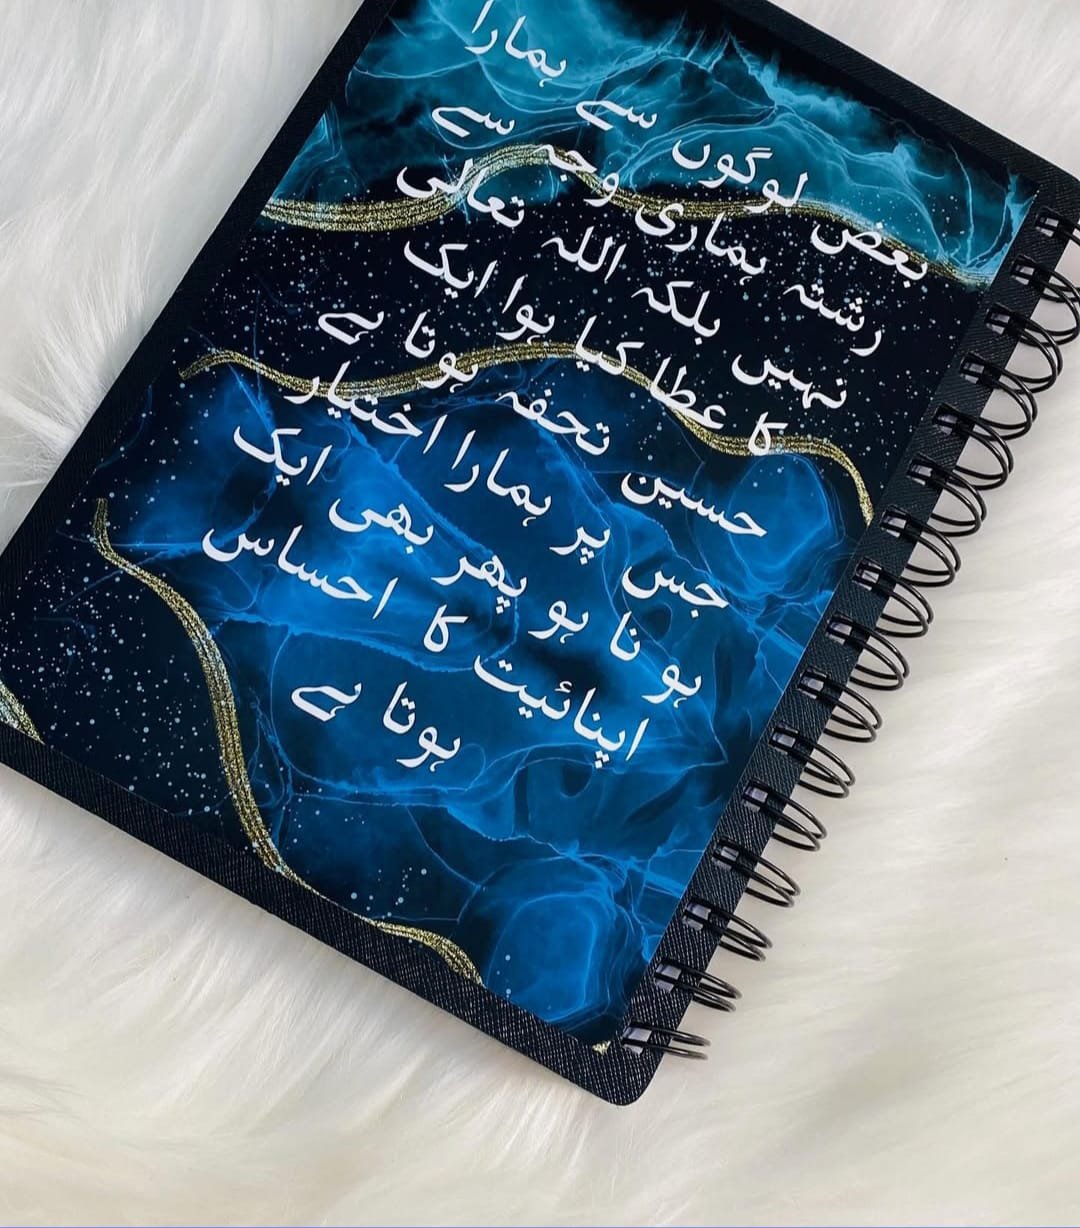 بعض لوگوں سے ہمارا
رشتہ ہماری وجہ سے
نہیں بلکہ اللہ تعالی
کا عطا کیا ہوا ایک
حسین تحفہ ہوتا ہے
جس پر ہمارا اختیار
ہو نا ہو پھر بھی ایک
اپنائیت کا احساس
ہوتا ہے